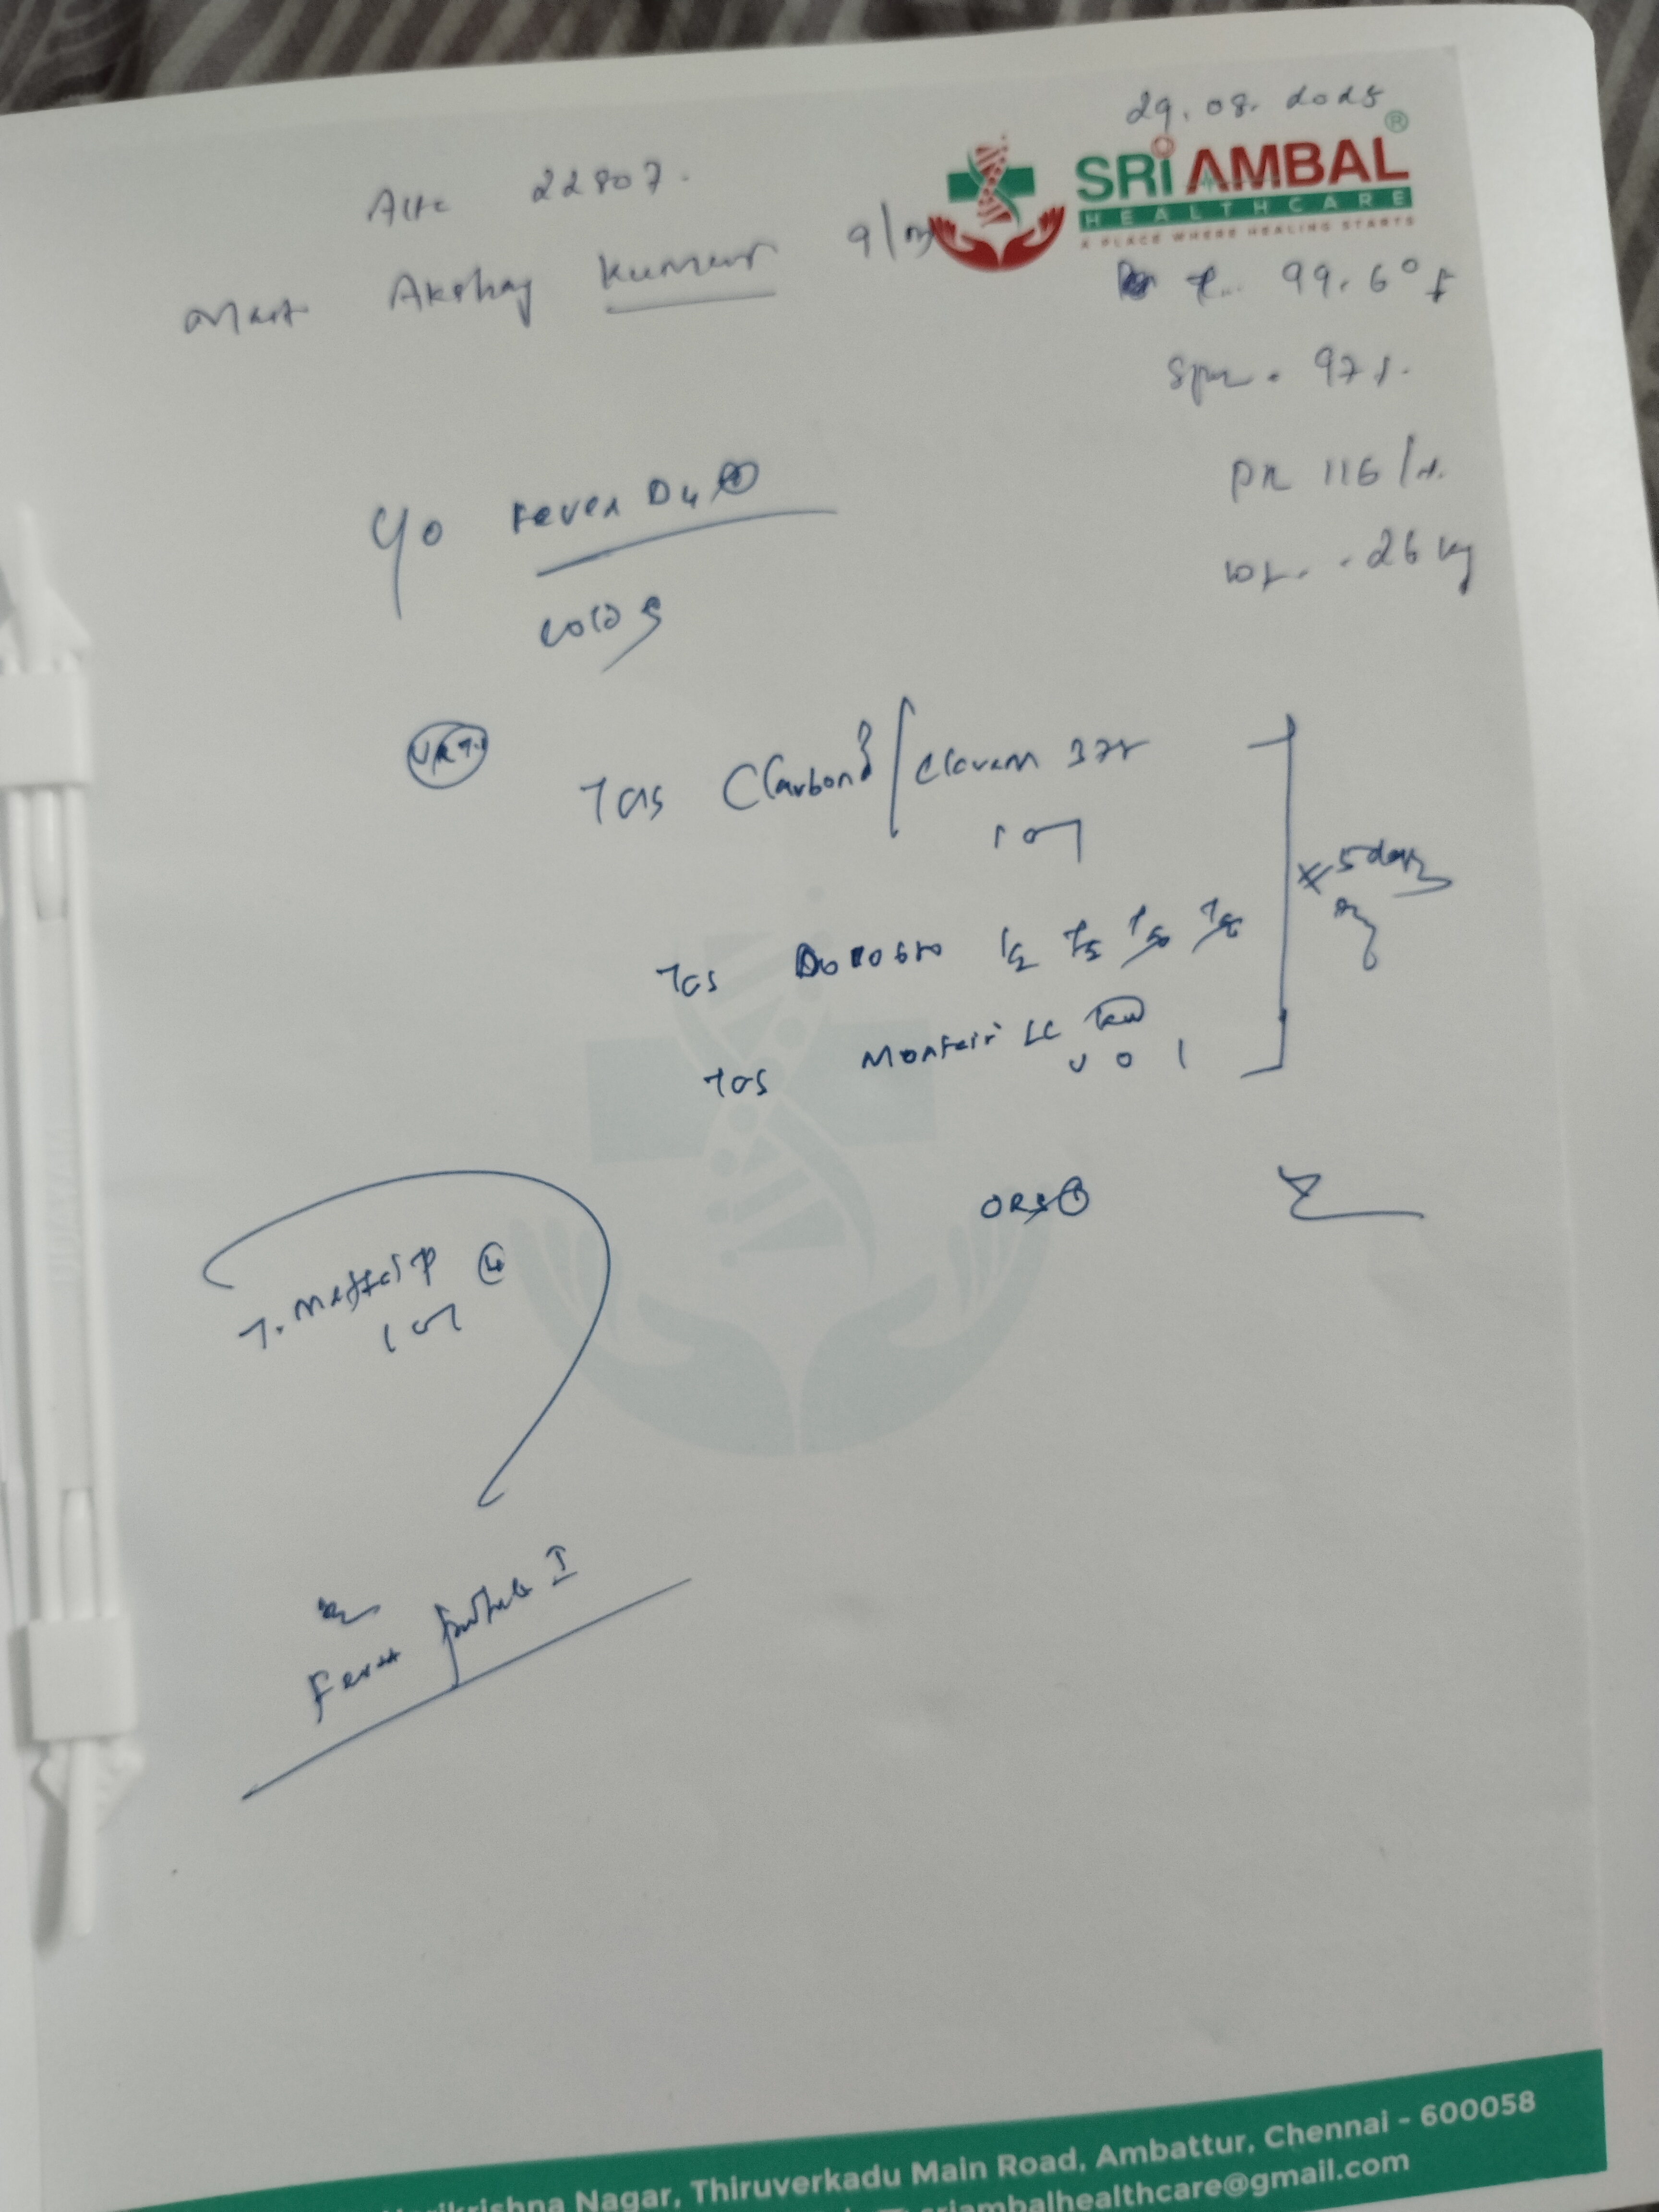 29.08.2025
AHC 22807.
SRI AMBAL ®
HEALTHCARE
A PLACE WHERE HEALING STARTS
Mast Akshay Kumar 9/m
T. 99.6°F
SpO2 - 97%.
PR 116/m.
wt. - 26 kg
c/o Fever D4
cold
URTI
Tab Clavam 375
1 0 1
x 5 days
Tab Dolo 650 1/2 1/2 1/2 1/2
Tab Montair LC Kid
0 0 1
ORS
T. Meftal P
1 0 1
Fever profile I
Nagar, Thiruverkadu Main Road, Ambattur, Chennai - 600058
sriambalhealthcare@gmail.com
UDAYAM